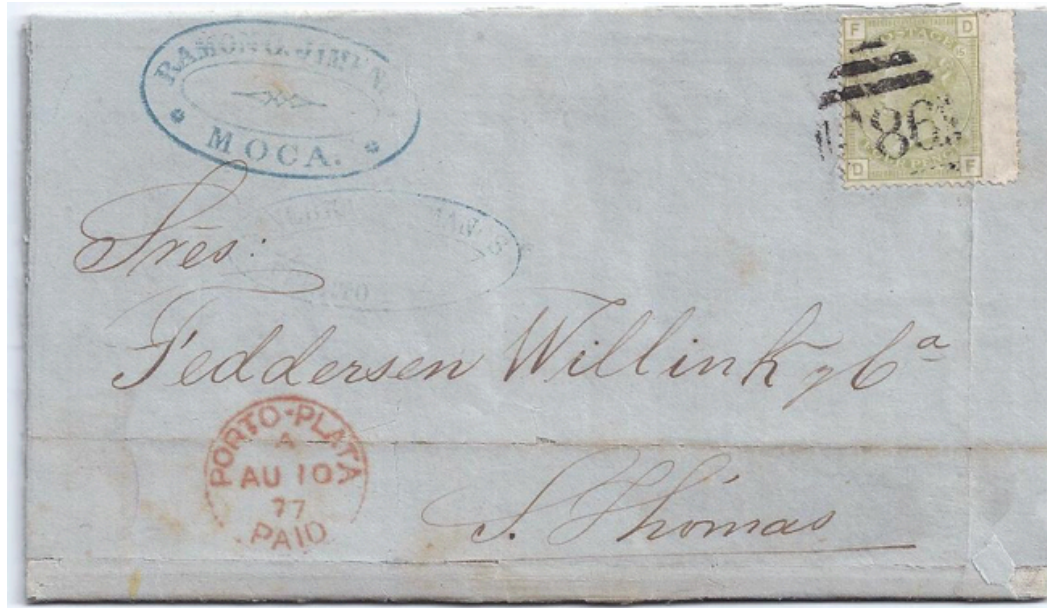 RAMON G. JIMEN
MOCA.
F D
POSTAGE
86
D F
Srēs:
Feddersen Willink y Cª
PORTO-PLATA
A
AU 10
77
PAID
S. Thómas